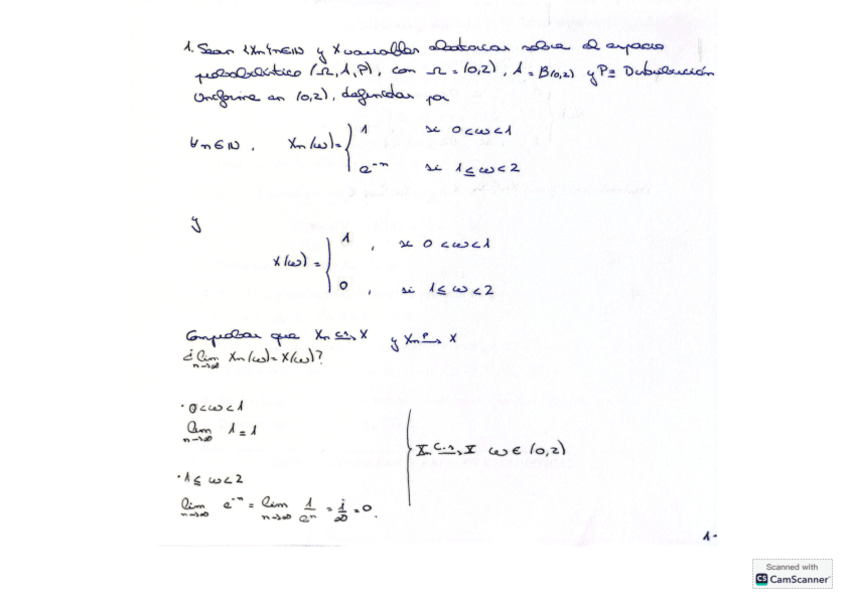 1. Sean {Xn}n∈N y X variables aleatorias sobre el espacio
probabilístico (Ω, A, P), con Ω = (0,2), A = B(0,2) y P ≡ Distribución
Uniforme en (0,2), definidas por
∀n∈N, Xn(ω) = { 1 si 0<ω<1
e⁻ⁿ si 1≤ω<2
y
X(ω) = { 1, si 0<ω<1
0, si 1≤ω<2
Comprobar que Xn c.s.→ X y Xn P→ X
¿lim n→∞ Xn(ω) = X(ω)?
· 0<ω<1
lim n→∞ 1 = 1
Xn c.s.→ X ω ∈ (0,2)
· 1≤ω<2
lim n→∞ e⁻ⁿ = lim n→∞ 1/eⁿ = 1/∞ = 0.
1-
Scanned with
CS CamScanner